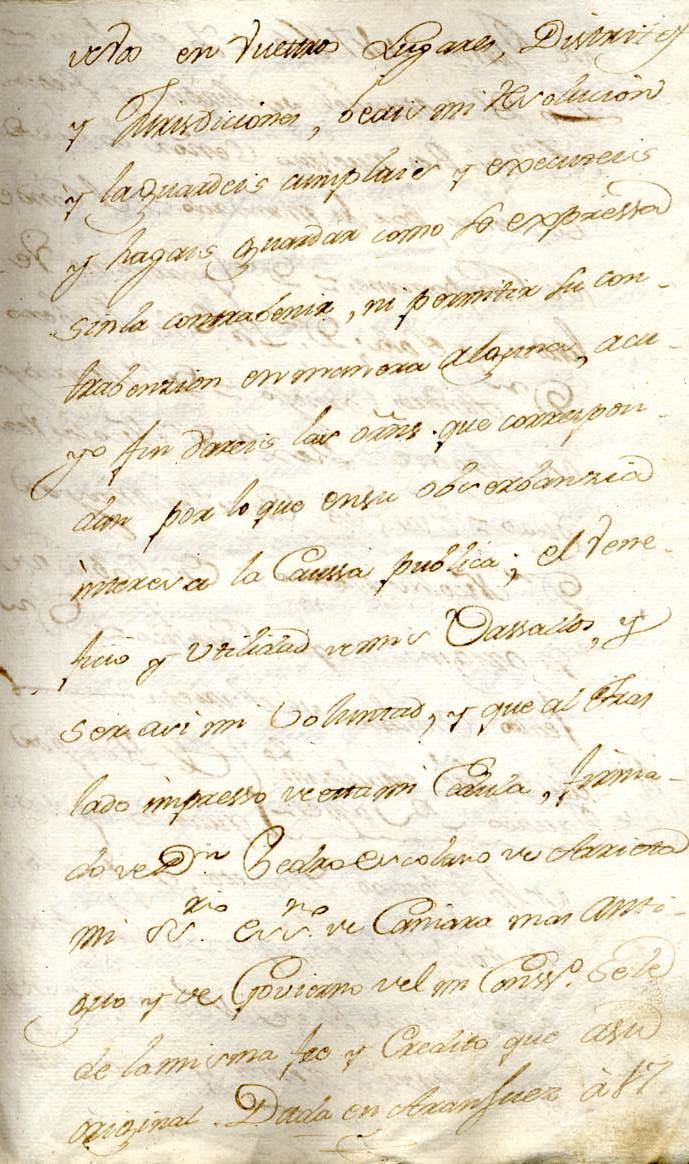 en vuestros Lugares, Distritos
y Jurisdiciones, beais mi Resolucion
y la guardeis cumplais y executeis
y hagais guardar como se expressa
sin la contrabenir, ni permitir su con-
trabenzion en manera alguna, acu-
yo fin dareis las ôrns. que correspon-
dan por lo que en su observanzia
interesa la Caussa publica; el vene-
ficio y utilidad de mis Vassallos, y
ser asi mi Voluntad, y que al tras
lado impresso de esta mi Cedula, firma-
do de Dn. Pedro Escolano de Arrieta
mi Ssrio. Essno. de Camara mas anti-
guo y de Govierno del mi Conss.o se le
de la misma fee y Credito que asu
original. Dada en Aranjuez à 17